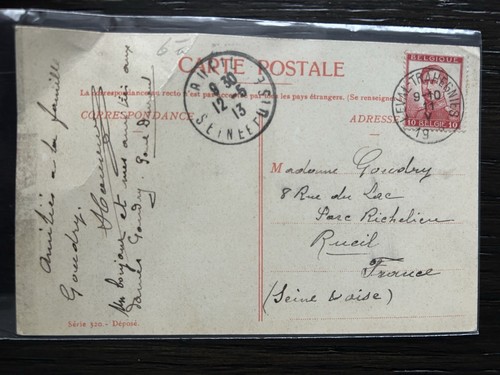 6-
CARTE POSTALE
La correspondance au recto n'est pas acceptée par tous les pays étrangers. (Se renseigner
CORRESPONDANCE
ADRESSE
RUEIL
8 30
12-5
13
SEINE-ET-OISE
BELGIQUE
10 BELGIË 10
9-10
11
V
19
Amitiés à la famille
Goudry.
Un bonjour et mes amitiés aux
dames Goudry.
Madame Goudry
8 Rue du Lac
Parc Richelieu
Rueil
France
(Seine & Oise)
Série 320. - Déposé.